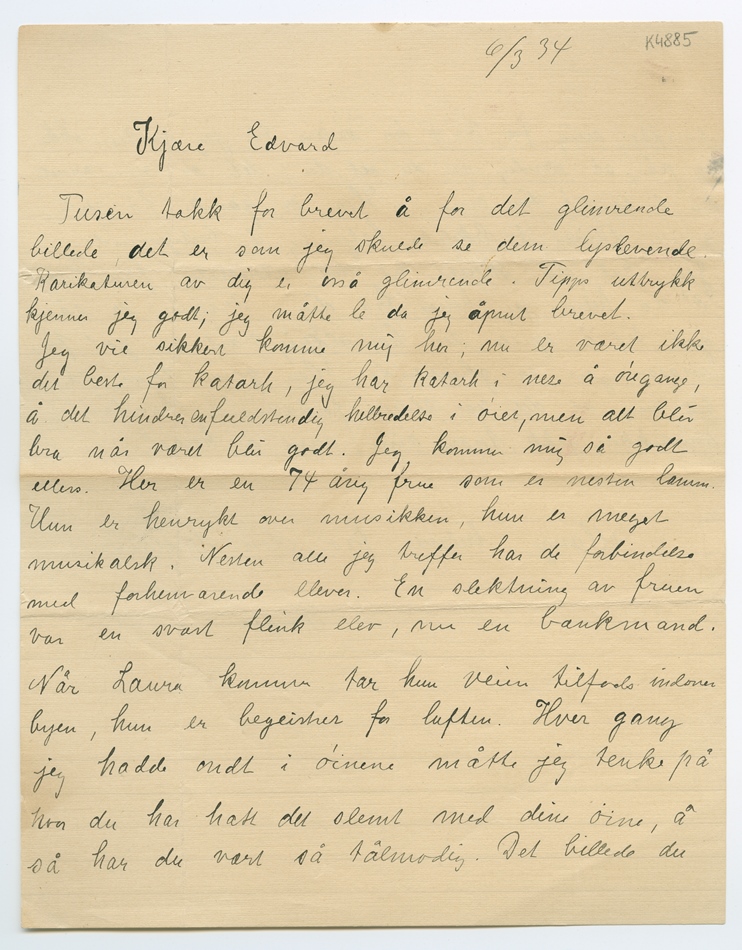 6/3 34
K4885
Kjære Edvard
Tusen takk for brevet å for det glimrende
billede, det er som jeg skulde se dem lyslevende.
Karikaturen av dig er osså glimrende. Tipps uttrykk
kjenner jeg godt; jeg måtte le da jeg åpnet brevet.
Jeg vil sikkert komme mig her; nu er været ikke
det beste for katarh, jeg har katarh i nese å øregange,
å det hindrer en fuldstendig helbredelse i øiet, men alt blir
bra når været blir godt. Jeg kommer mig så godt
ellers. Her er en 74 årig frue som er nesten lamm.
Hun er henrykt over musikken, hun er meget
musikalsk. Nesten alle jeg treffer har de forbindelse
med forhenværende elever. En slektning av fruen
var en svært flink elev, nu en bankmand.
Når Laura kommer tar hun veien tilfods indover
byen, hun er begeistret for luften. Hver gang
jeg hadde ondt i øinene måtte jeg tenke på
hvor du har hatt det slemt med dine øine, å
så har du vært så tålmodig. Det billede du